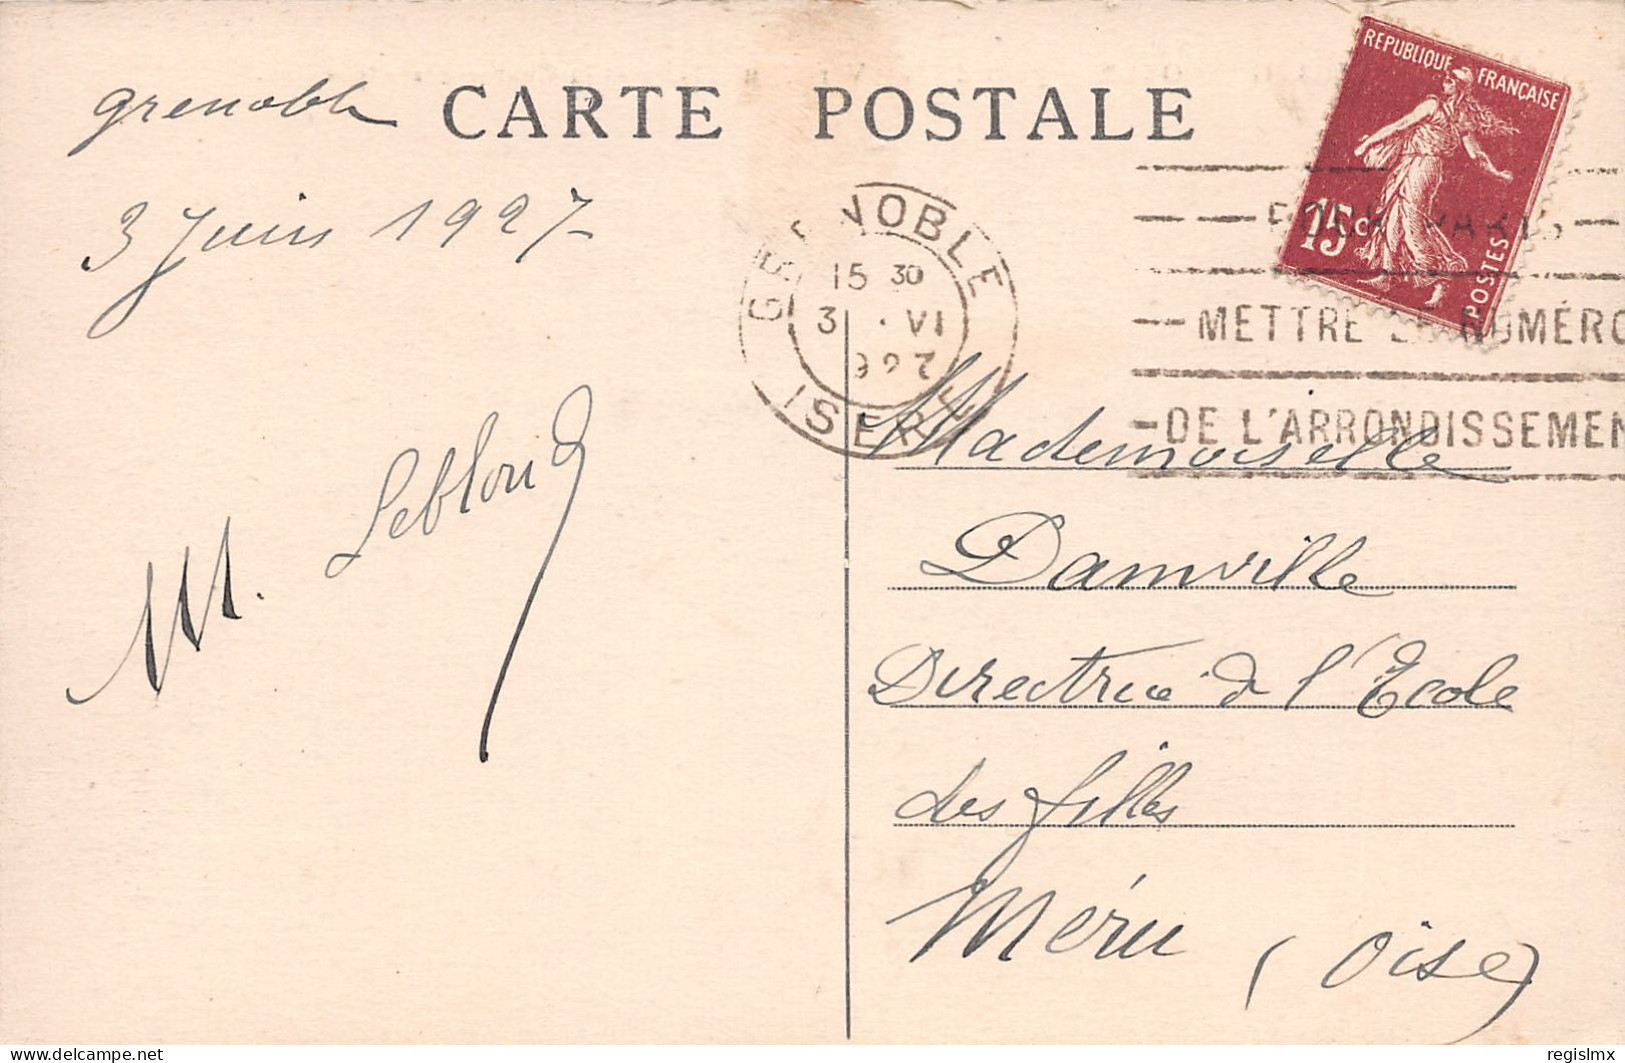 CARTE POSTALE
grenoble
3 Juin 1927
M. Leblond
REPUBLIQUE FRANÇAISE
15c
POSTES
GRENOBLE
15 30
3 . VI
927
ISERE
POUR PARIS
METTRE LE NUMÉRO
DE L'ARRONDISSEMEN
Mademoiselle
Damville
Directrice de l'Ecole
des filles
Méru (Oise)
www.delcampe.net
regislmx